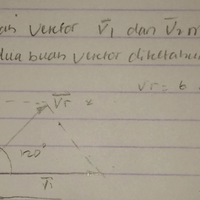 vektor V̄₁ dan V̄₂ m
dua buah vektor diketahui
Vr = 6
V̄r
120°
V̄₁